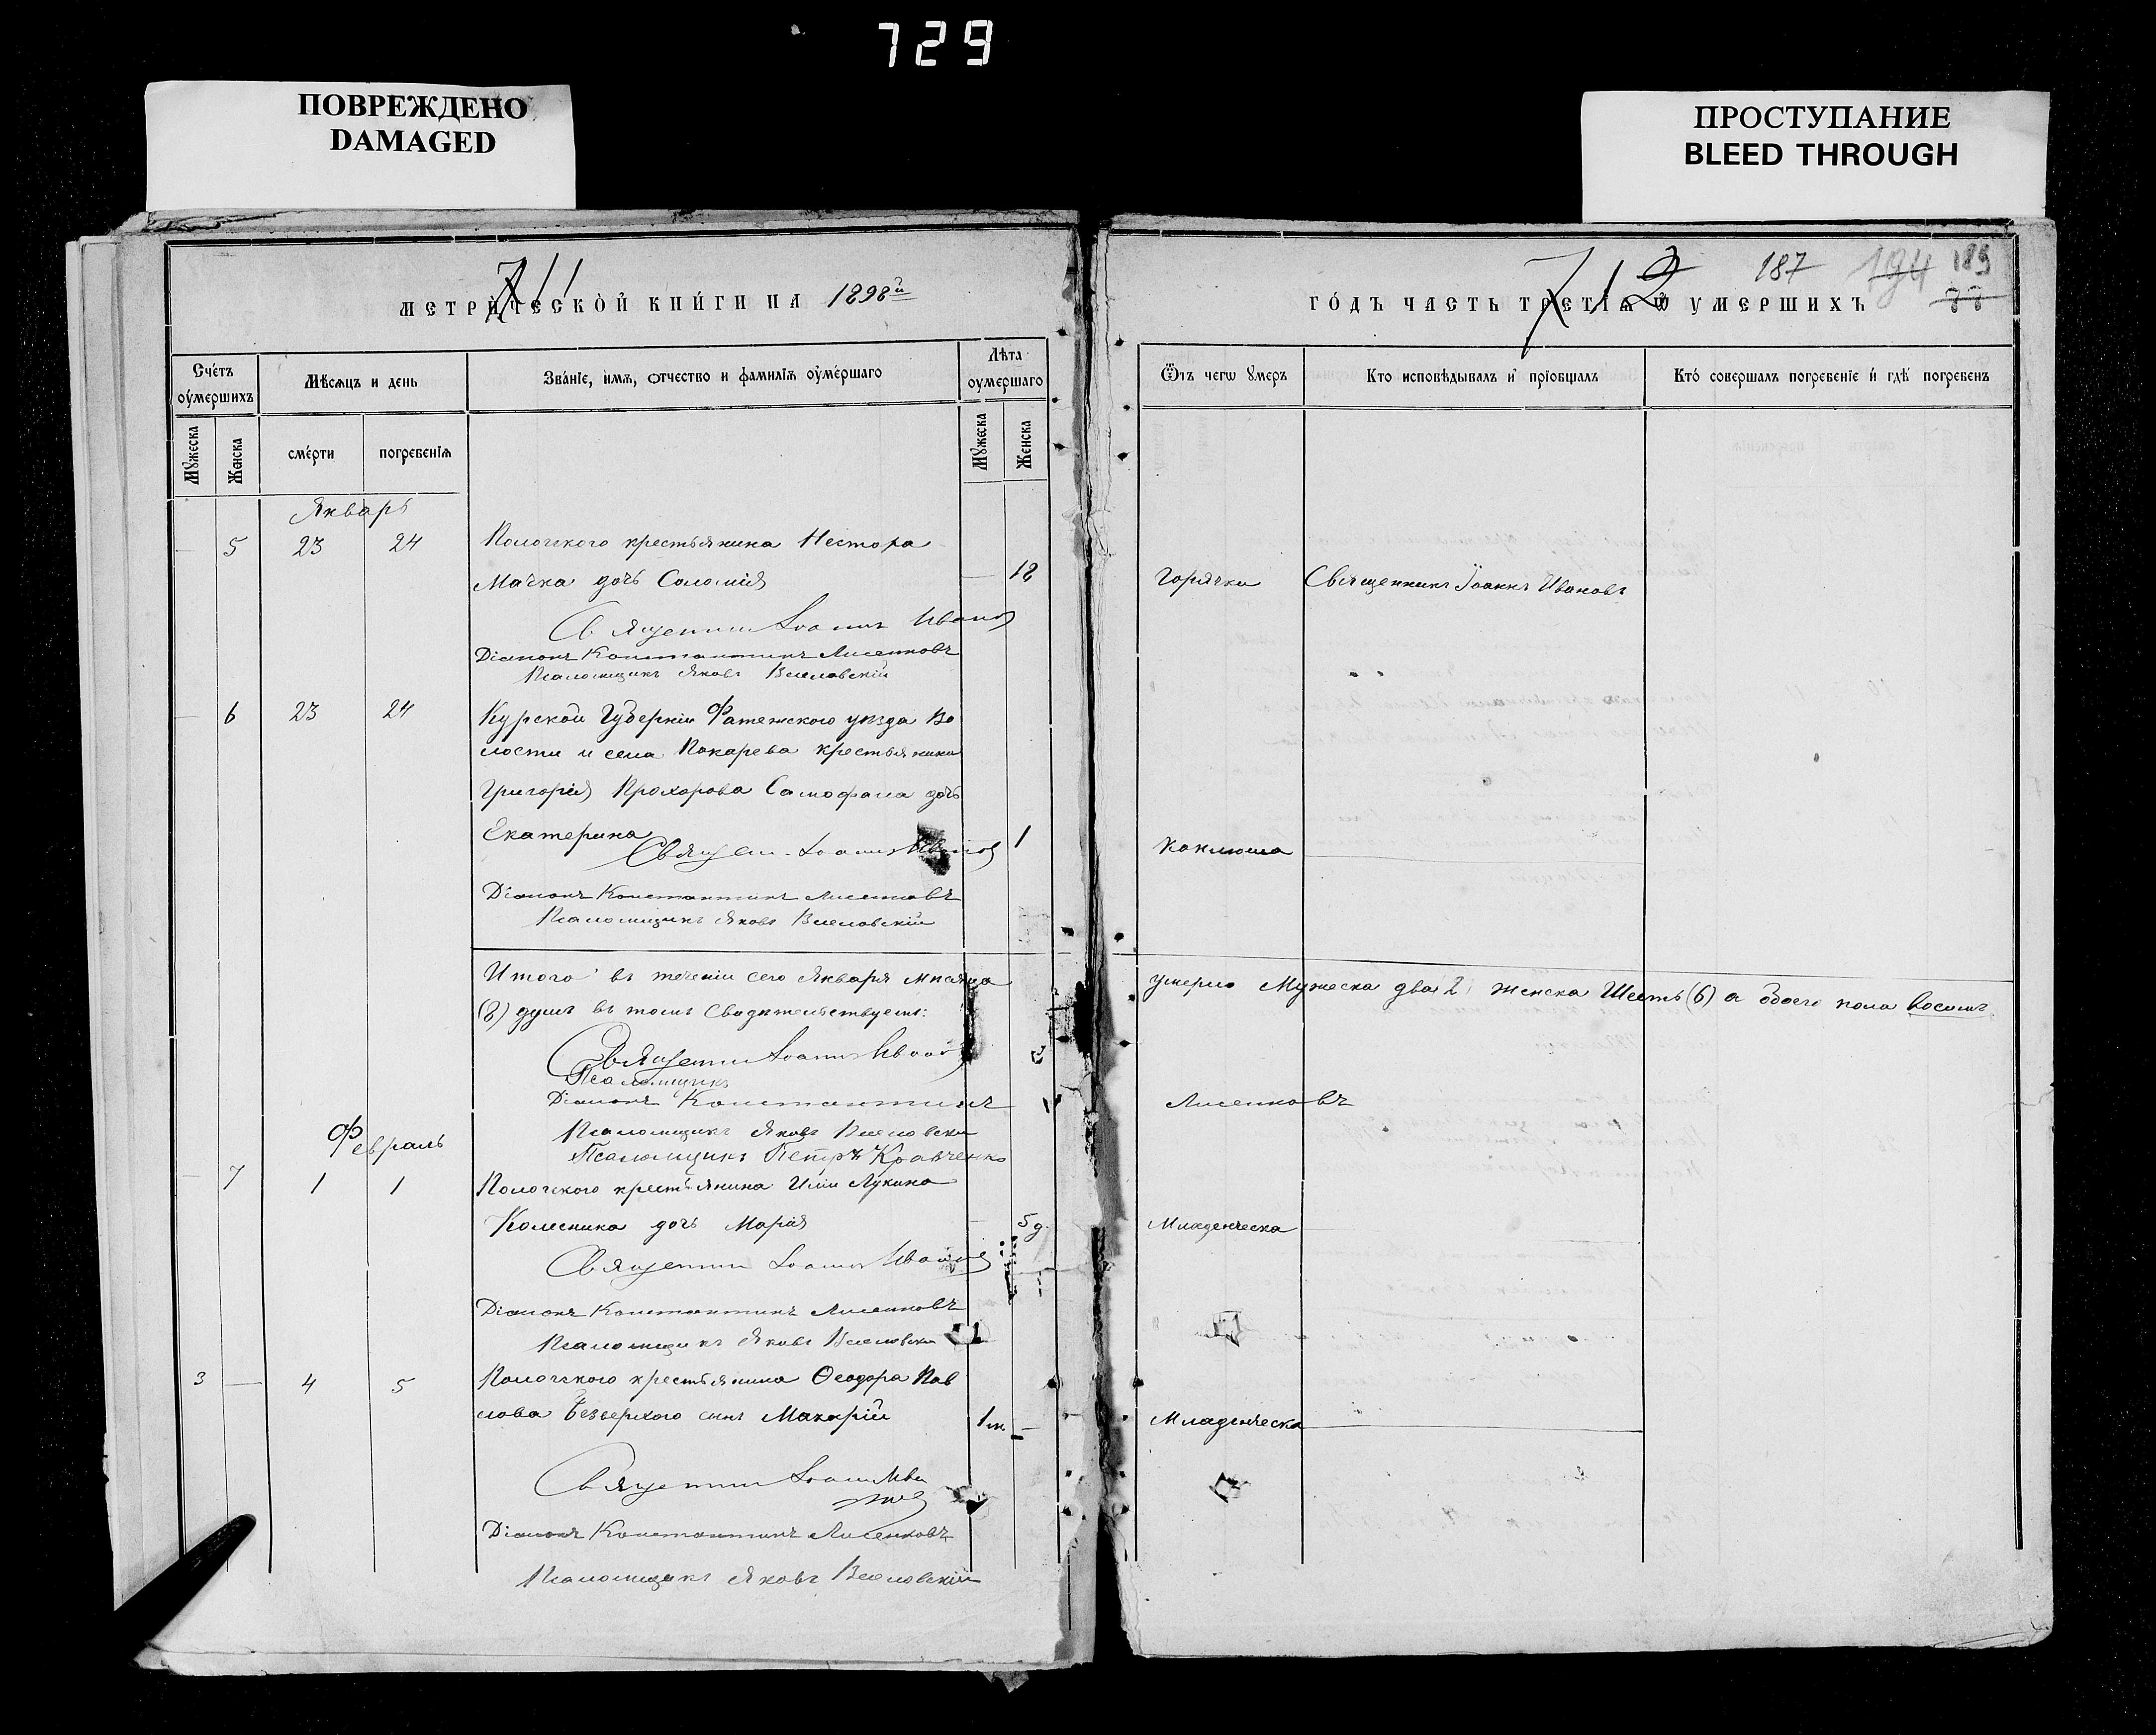 729
ПОВРЕЖДЕНО
DAMAGED
ПРОСТУПАНИЕ
BLEED THROUGH
711
МЕТРИЧЕСКОЙ КНИГИ НА 1898й
Счетъ оумершихъ
Мѣсяцъ и день
Званіе, имя, отчество и фамилія оумершаго
Лѣта оумершаго
Мужеска
Женска
смерти
погребенія
Мужеска
Женска
Январь
5 23 24 Пологского крестьянина Нестора
Мачка дочь Соломія 18
Священник Іоаннъ Иванов
Діаконъ Константинъ Лисенковъ
Псаломщикъ Яковъ
6 23 24 Курской Губерніи Фатежского уѣзда Во
лости и села Покарева крестьянина
Григорія Прохорова Самофала дочь
Екатерина 1
Священ. Іоаннъ Иванов
Діаконъ Константинъ Лисенковъ
Псаломщикъ Яковъ
Итого въ теченіи сего Января мѣсяца
(8) душъ въ томъ свидѣтельствуемъ:
Священник Іоаннъ Иванов
Псаломщикъ
Діаконъ Константинъ
Псаломщикъ Яковъ
Псаломщикъ Петръ Кравченко
Февраль
7 1 1 Пологского крестьянина Иліи Лукина
Колесника дочь Марія 5 д.
Священник Іоаннъ Иванов
Діаконъ Константинъ Лисенковъ
Псаломщикъ Яковъ
3 — 4 5 Пологского крестьянина Ѳеодора Пав
лова Безверхого сынъ Макарій 1 м. —
Священник Іоаннъ Ива
нов
Діаконъ Константинъ Лисенковъ
Псаломщикъ Яковъ
712 187 194 189
ГОДЪ ЧАСТЬ ТРЕТІЯ Ѿ УМЕРШИХЪ
Ѿтъ чегѡ умеръ
Кто исповѣдывалъ и пріобщалъ
Кто совершалъ погребеніе и гдѣ погребенъ
Горячки Священникъ Іоаннъ Ивановъ
Коклюша
умерло Мужеска два 2) женска Шесть (6) а обоего пола восемь
Лисенковъ
Младенческа
Младенческа